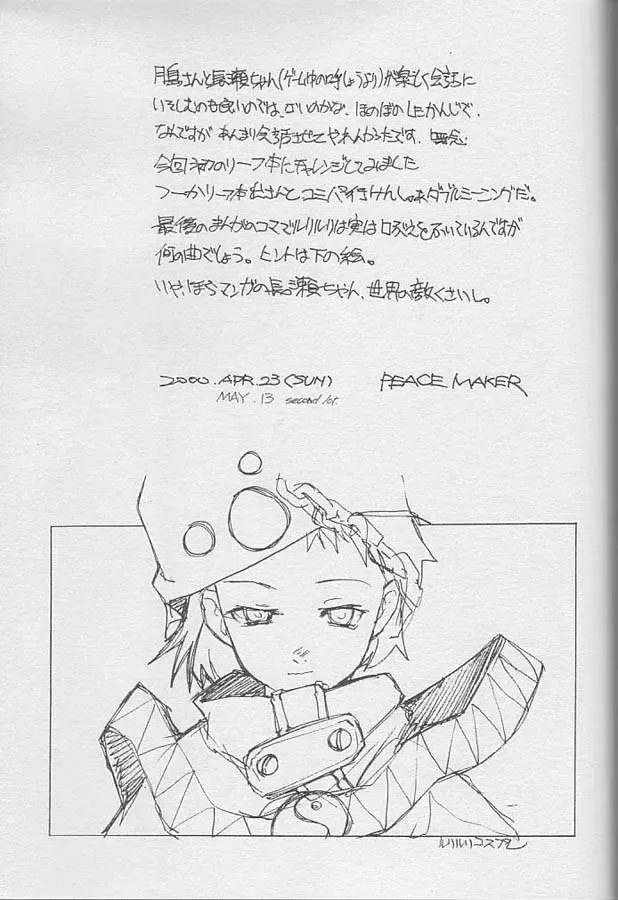 月島さんと長瀬ちゃん(ゲーム中の呼しょうより)が楽しく会話に
いそしむのも良いのでは、ないのかな、ほのぼのしたかんじで、
なんですが あんまり会話させてやれんかったです。無念
今回 初のリーフ本にチャレンジしてみました
リーフ本 さんとコミパ ダブルミーニングだ。
最後のまんがのコマでルリルリは実は口ぶえを吹いているんですが
何の曲でしょう。ヒントは下の絵。
いや、ぼくらマンガの長瀬ちゃん、世界の敵くさいし。
2000.APR.23(SUN) PEACE MAKER
MAY.13 second lot.
ルリルリコスプレ